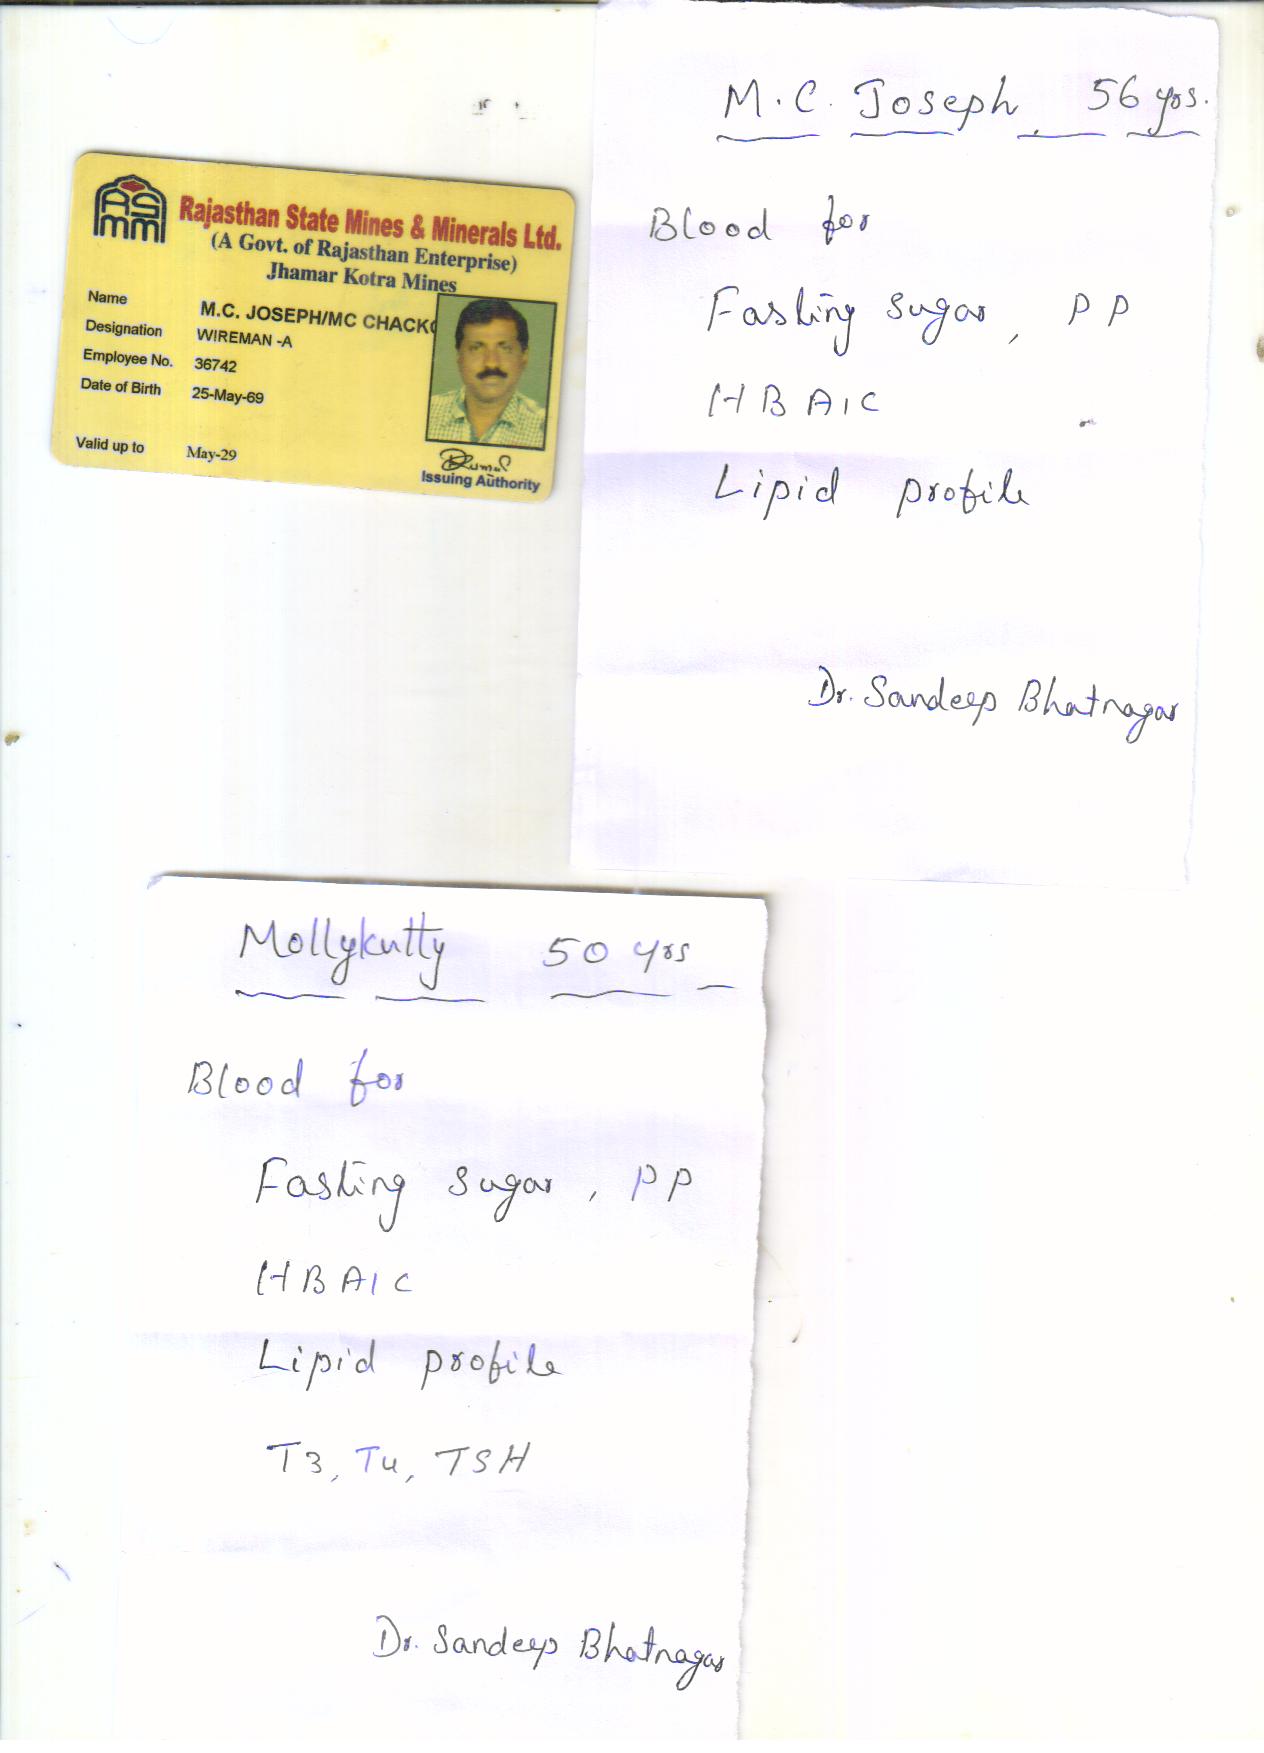 RS
mml
Rajasthan State Mines & Minerals Ltd.
(A Govt. of Rajasthan Enterprise)
Jhamar Kotra Mines
Name M.C. JOSEPH/MC CHACKO
Designation WIREMAN -A
Employee No. 36742
Date of Birth 25-May-69
Valid up to May-29
Issuing Authority
M.C. Joseph, 56 yrs.
Blood for
Fasting sugar, PP
HBA1C
Lipid profile
Dr. Sandeep Bhatnagar
Mollykutty 50 yrs
Blood for
Fasting sugar, PP
HBA1C
Lipid profile
T3, T4, TSH
Dr. Sandeep Bhatnagar